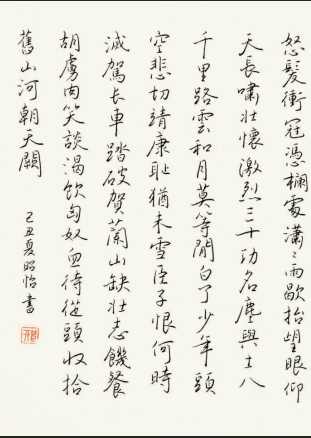 怒髮衝冠憑欄處瀟〻雨歇抬望眼仰
天長嘯壯懷激烈三十功名塵與土八
千里路雲和月莫等閒白了少年頭
空悲切靖康恥猶未雪臣子恨何時
滅駕長車踏破賀蘭山缺壯志饑餐
胡虜肉笑談渴飲匈奴血待從頭收拾
舊山河朝天闕
己丑夏昭怡書